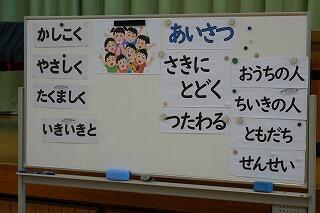 かしこく
やさしく
たくましく
いきいきと
あいさつ
さきに
とどく
つたわる
おうちの人
ちいきの人
ともだち
せんせい